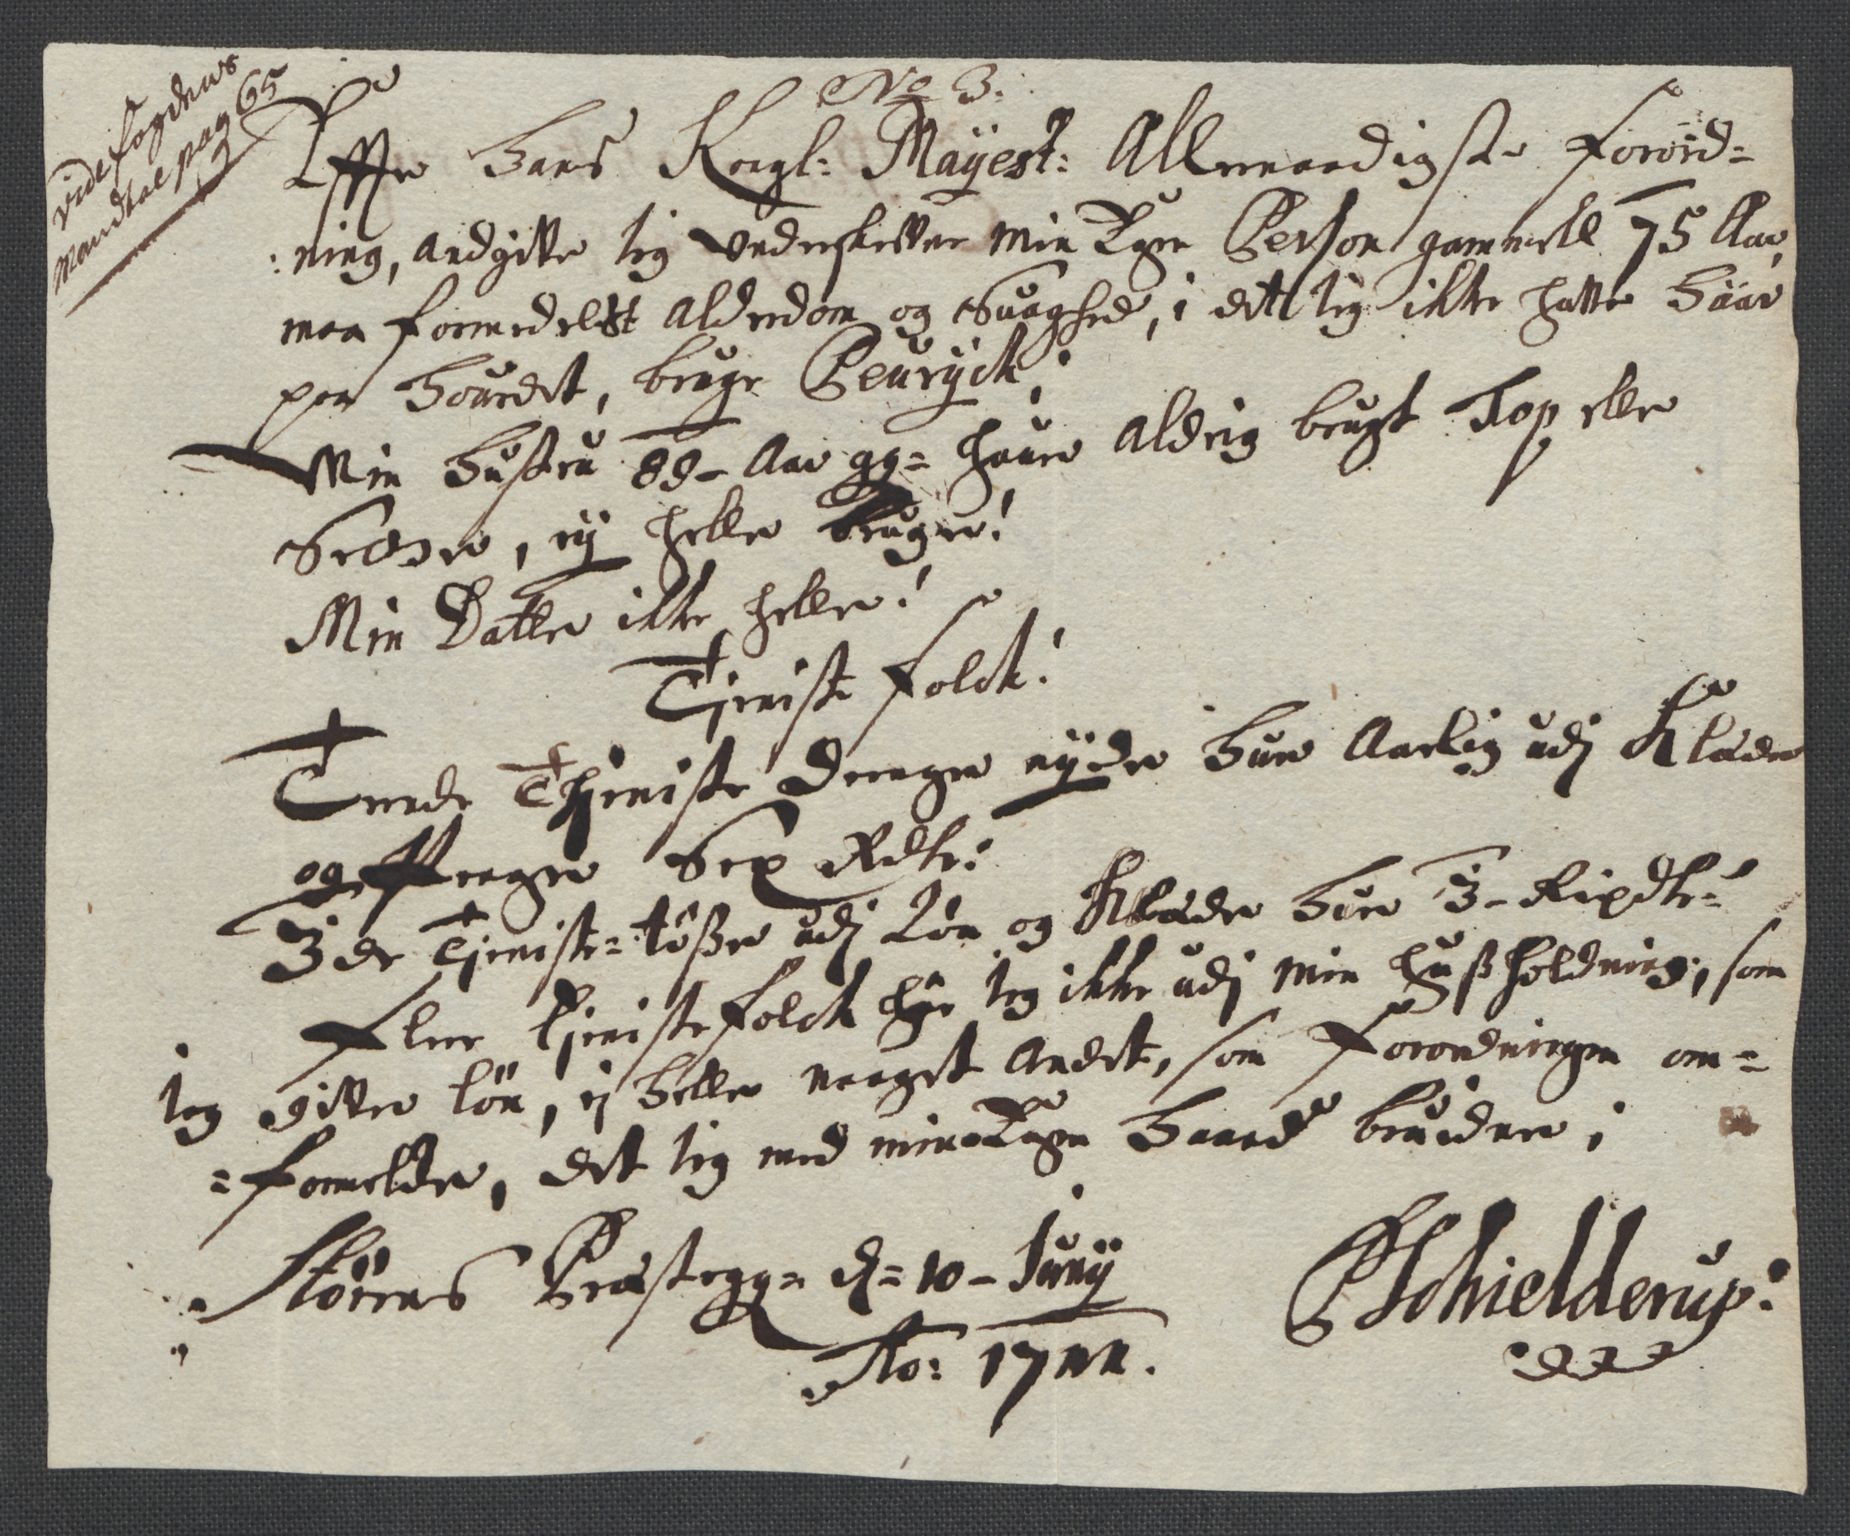 vide fogdens
Mandtal pag 65
No 3.
Effter Hans Kongl: Mayest: Allernaadigste Forord=
:ning, andgiffve ieg underskreffne min Egen Person gammell 75 Aar,
maa formedelst Alderdom og Svaghed, i det ieg ikke haffver Haar
paa Hovedet, bruge Peuryck;
Min Hustru 88 - Aar gg= haver Aldrig brugt Top eller
ey heller bruger!
Min Datter ikke heller!
Tieniste Folck!
Trende Thieniste Drenge nyder hver Aarlig udj Klæder
og Penger Sex Rdlr:
3de Tieniste=tøsser udj Løn og Klæder hver 3 - Rixdlr:
Fleer tieniste folck har ieg ikke udj min Hussholdning, som
ieg giffver løn, ej heller naaget Andet, som Forordningen om=
=formelder, det ieg med min Egen Haand bekræfter;
Størens Præstegg= d= 10 - Junij
Ao: 1711.
PSchielderup: